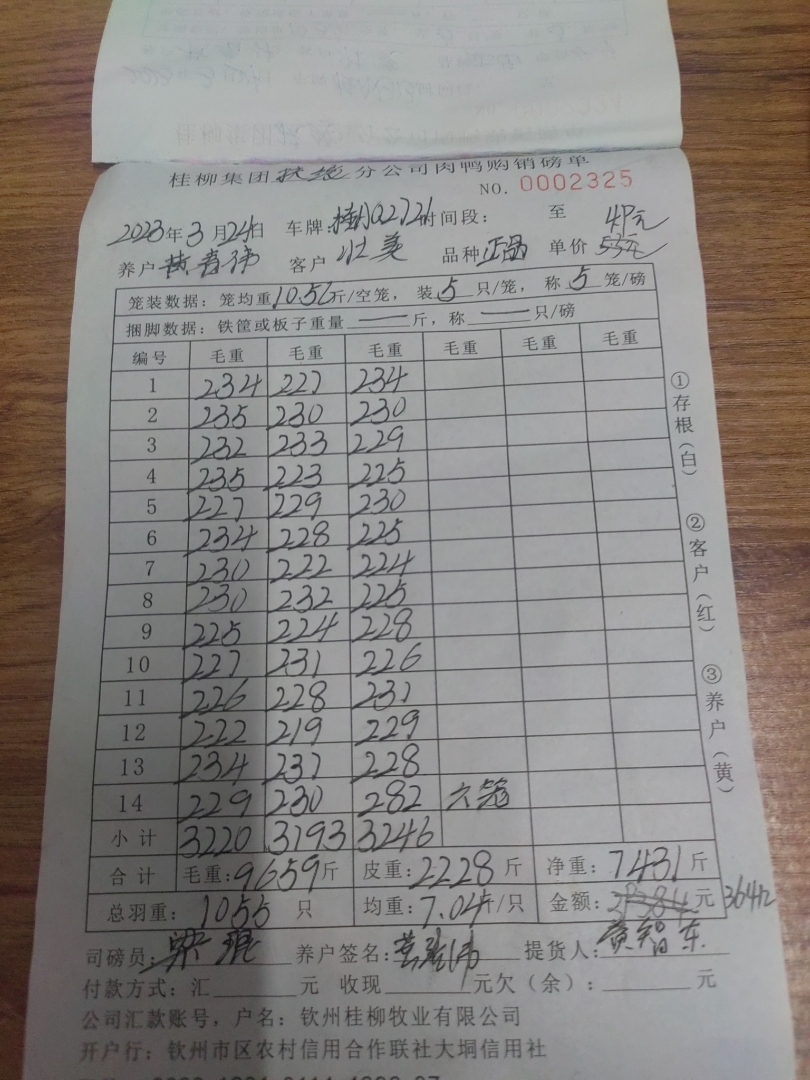 桂柳集团扶绥分公司肉鸭购销磅单
NO. 0002325
2023年3月24日 车牌: 时间段: 至 49元
养户 黄春伟 客户 壮美 品种 正品 单价
笼装数据: 笼均重10.56斤/空笼, 装5只/笼, 称5笼/磅
捆脚数据: 铁筐或板子重量 — 斤, 称 — 只/磅
编号 毛重 毛重 毛重 毛重 毛重 毛重
1 234 227 234
2 235 230 230
3 232 233 229
4 235 223 225
5 227 229 230
6 234 228 225
7 230 222 224
8 230 232 225
9 225 224 228
10 227 231 226
11 226 228 231
12 222 219 229
13 234 237 228
14 229 230 282 六笼
小计 3220 3193 3246
合计 毛重:9659斤 皮重:2228斤 净重:7431斤
总羽重: 1055 只 均重:7.04斤/只 金额: 元 36412
司磅员: 梁琨 养户签名: 提货人: 黄智东
付款方式: 汇 元 收现 元欠(余): 元
公司汇款账号, 户名: 钦州桂柳牧业有限公司
开户行: 钦州市区农村信用合作联社大垌信用社
①存根(白)
②客户(红)
③养户(黄)